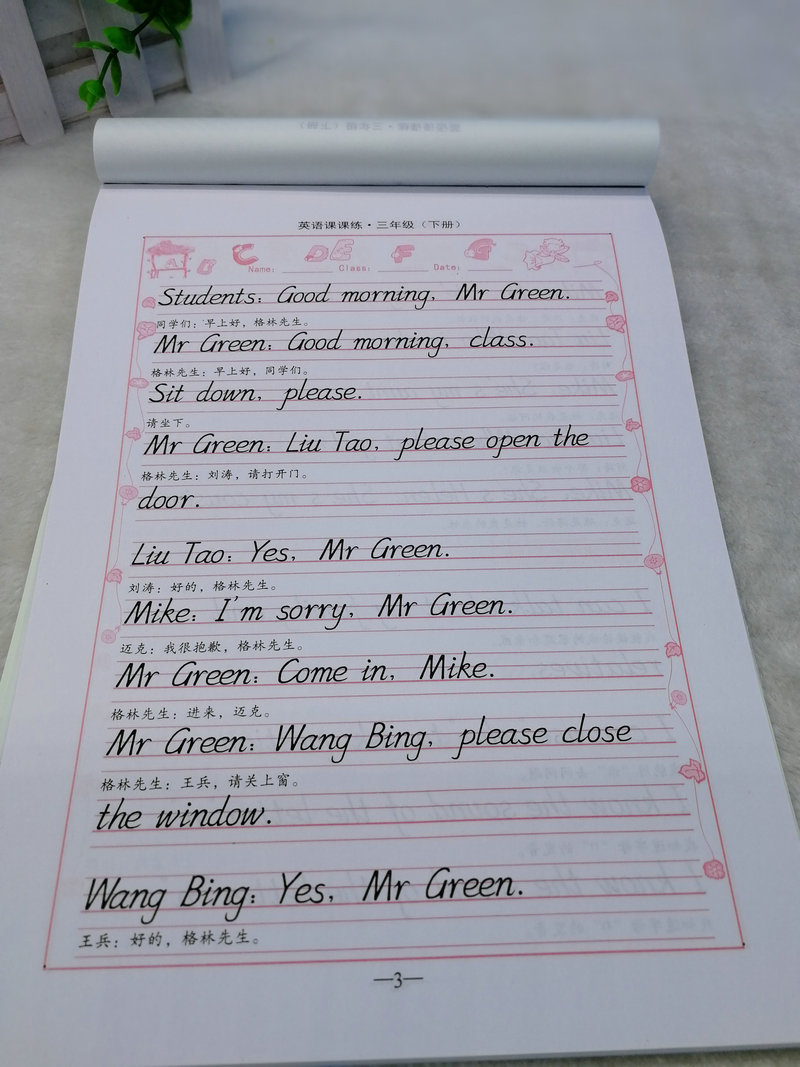 英语课课练·三年级（下册）
A B C D E F G
Name: Class: Date:
Students: Good morning, Mr Green.
同学们：早上好，格林先生。
Mr Green: Good morning, class.
格林先生：早上好，同学们。
Sit down, please.
请坐下。
Mr Green: Liu Tao, please open the
格林先生：刘涛，请打开门。
door.
Liu Tao: Yes, Mr Green.
刘涛：好的，格林先生。
Mike: I'm sorry, Mr Green.
迈克：我很抱歉，格林先生。
Mr Green: Come in, Mike.
格林先生：进来，迈克。
Mr Green: Wang Bing, please close
格林先生：王兵，请关上窗。
the window.
Wang Bing: Yes, Mr Green.
王兵：好的，格林先生。
—3—